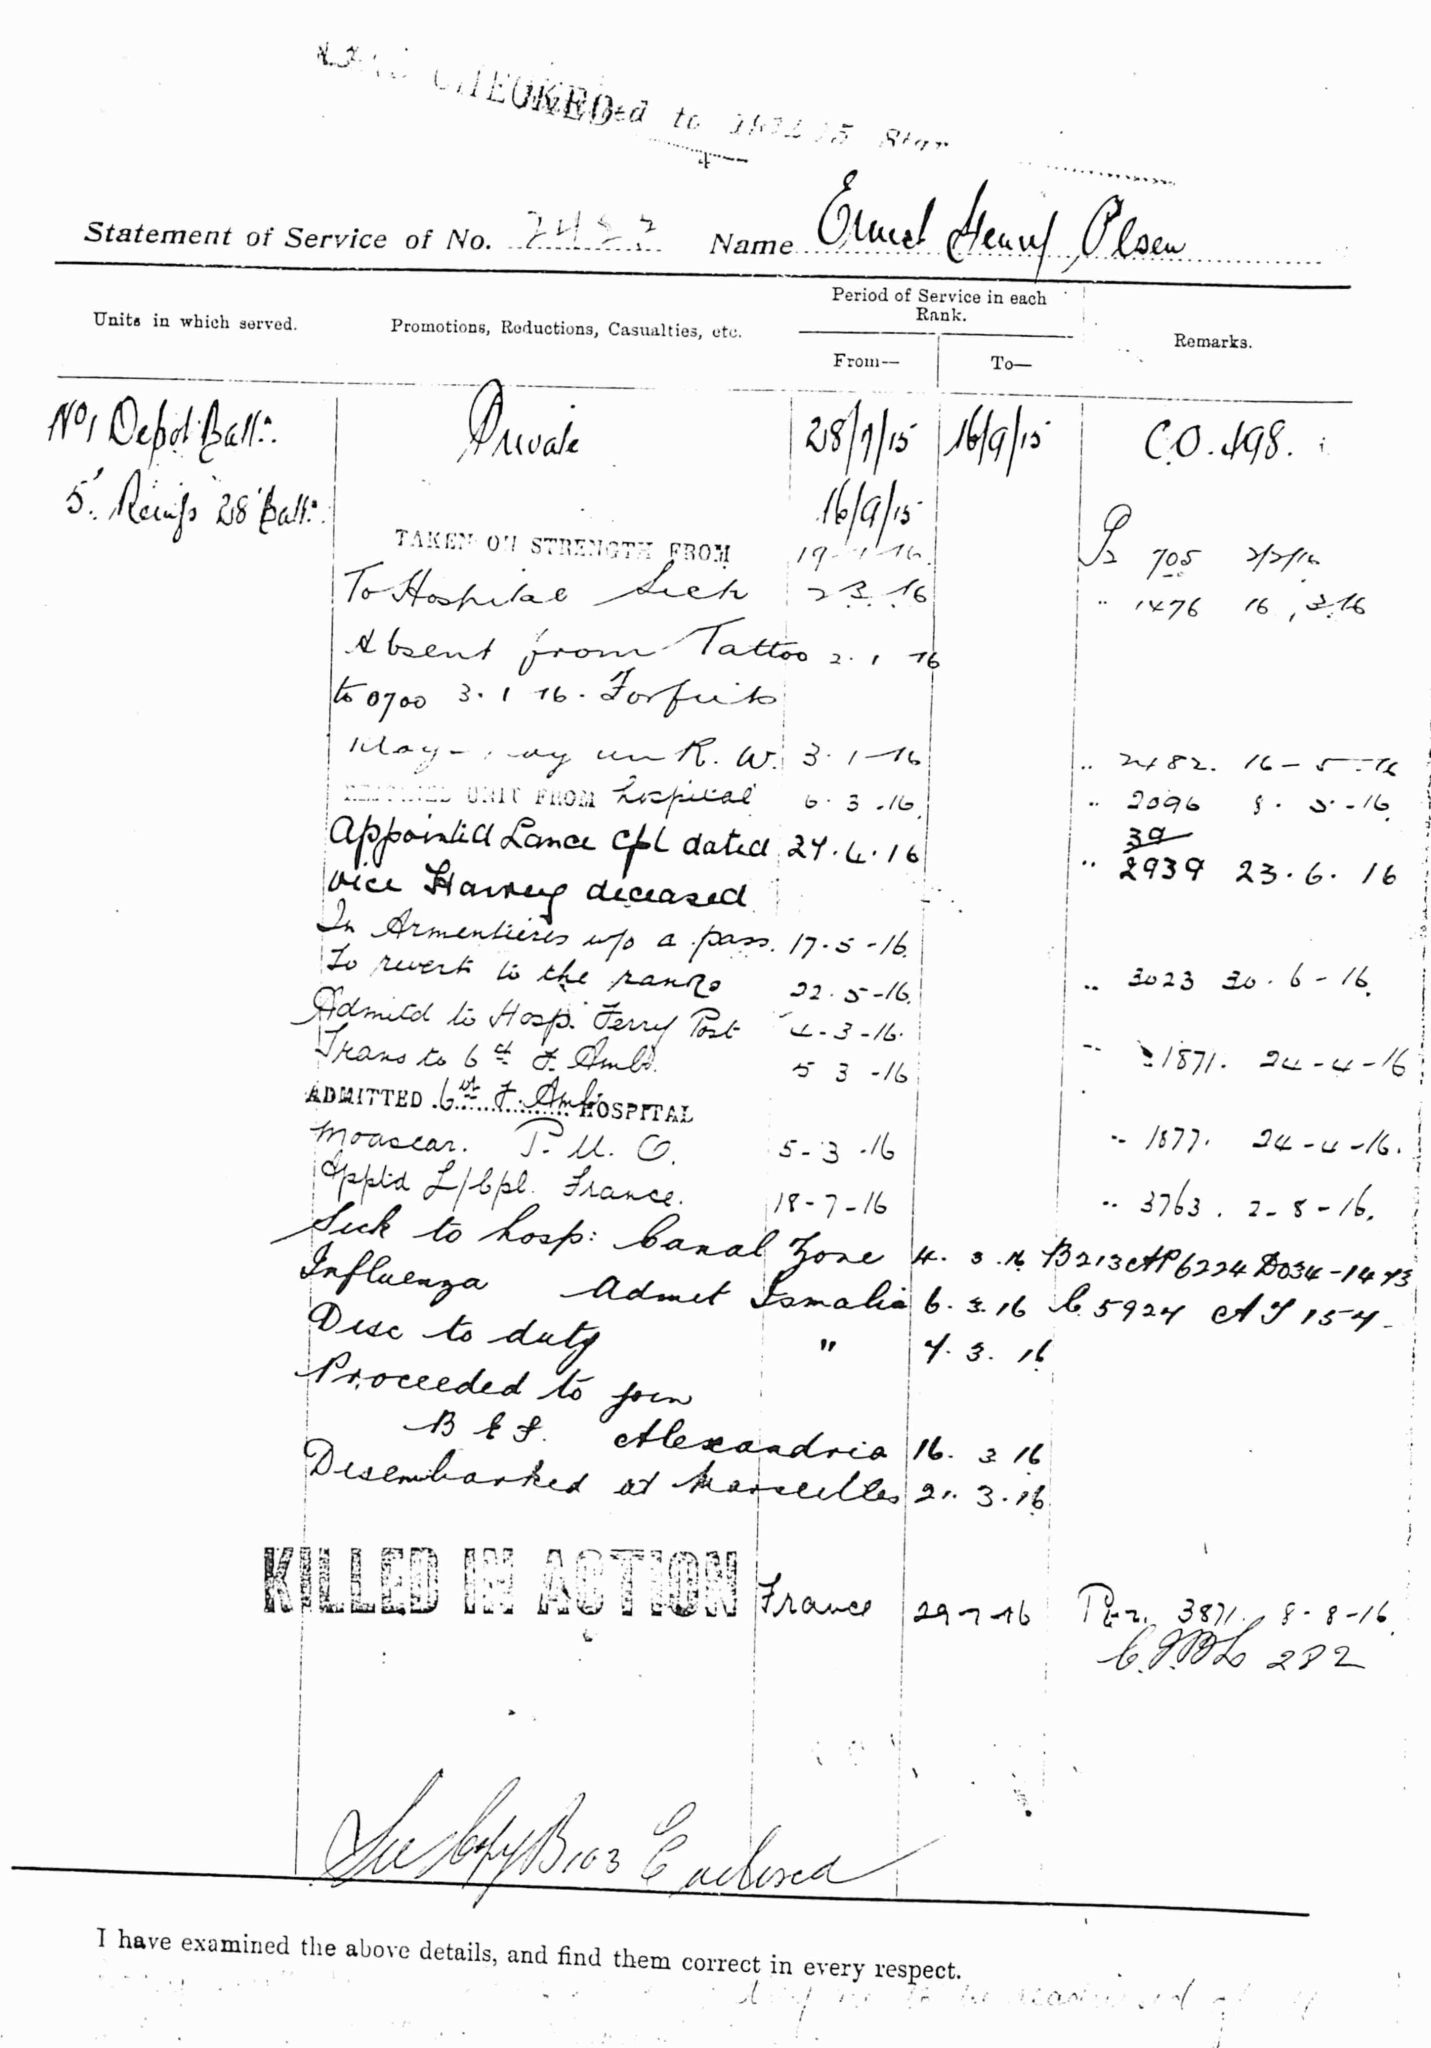 CHECKED
ed to 1914 15 Star
Statement of Service of No. Name Ernest Henry Olsen
Period of Service in each
Rank.
Units in which served. Promotions, Reductions, Casualties, etc. Remarks.
From— To—
No 1 Depot Battn. Private 28/7/15 16/9/15 C.O. 498.
5. Reinfs 28 Battn. 16/9/15
TAKEN ON STRENGTH FROM 19-1-16. 705 2/2/16
To Hospital Sick 2 3 16 " 1476 16 . 3.16
Absent from Tattoo 2. 1 16
to 0700 3. 1 16. Forfeits
R. W. 3. 1-16 .. 2482. 16-5-16
UNIT FROM hospital 6. 3 .16. .. 2096 8. 5-16.
39
Appointed Lance Cpl dated 27. 4. 16 .. 2939 23. 6. 16
vice Harvey deceased
In Armentieres w/o a pass. 17. 5-16.
To revert to the ranks 22. 5-16. .. 3023 30. 6-16.
Admitd to Hosp. Ferry Post 4-3-16.
Trans to 6th F. Amb. 5 3 -16 1871. 24-4-16
ADMITTED 6th F. Amb HOSPITAL
Moascar. P. U. O. 5-3-16 .. 1877. 24-4-16.
Apptd L/Cpl. France. 18-7-16 .. 3763. 2-8-16.
Sick to hosp: Canal Zone 4. 3 .16 B213 AP6224 DO34-1473
Influenza Admit Ismalia 6. 3. 16 C.5924 154-
Disc to duty " 7. 3. 16
Proceeded to join
B E F. Alexandria 16. 3 16
Disembarked at Marseilles 21. 3. 16
KILLED IN ACTION France 29-7-16 3871. 8-8-16.
282
See Copy B103 Enclosed
I have examined the above details, and find them correct in every respect.